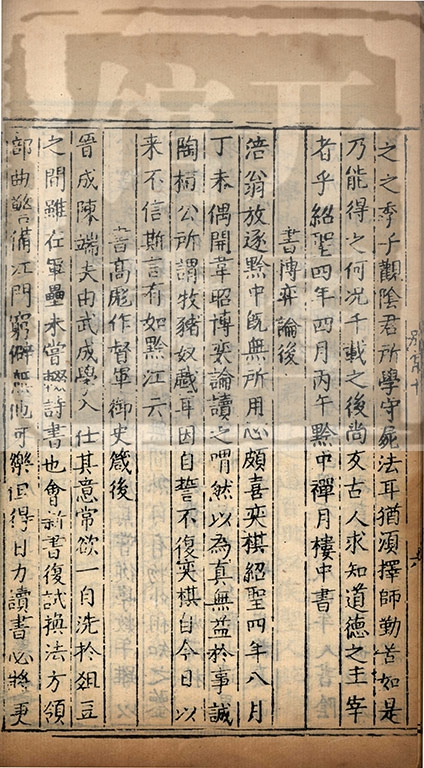 之之季子觀陰君所學守屍法耳猶須擇師勤苦如是
乃能得之何況千載之後尚友古人求知道德之主宰
者乎紹聖四年四月丙午黔中禪月樓中書
書博弈論後
涪翁放逐黔中既無所用心頗喜奕棋紹聖四年八月
丁未偶開韋昭博奕論讀之喟然以為真無益於事誠
陶桓公所謂牧豬奴戲耳因自誓不復奕棋自今日以
来不信斯言有如黔江云
書髙彪作督軍御史箴後
晉成陳端夫由武成學入仕其意常欲一自洗於爼豆
之間雖在軍壘未嘗輟詩書也會新書復試換法方領
部曲警備江門窮僻無他可樂但得日力讀書必將更